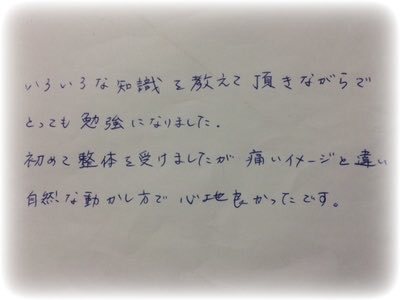 いろいろな知識を教えて頂きながらで
とっても勉強になりました.
初めて整体を受けましたが痛いイメージと違い
自然な動かし方で心地良かったです。